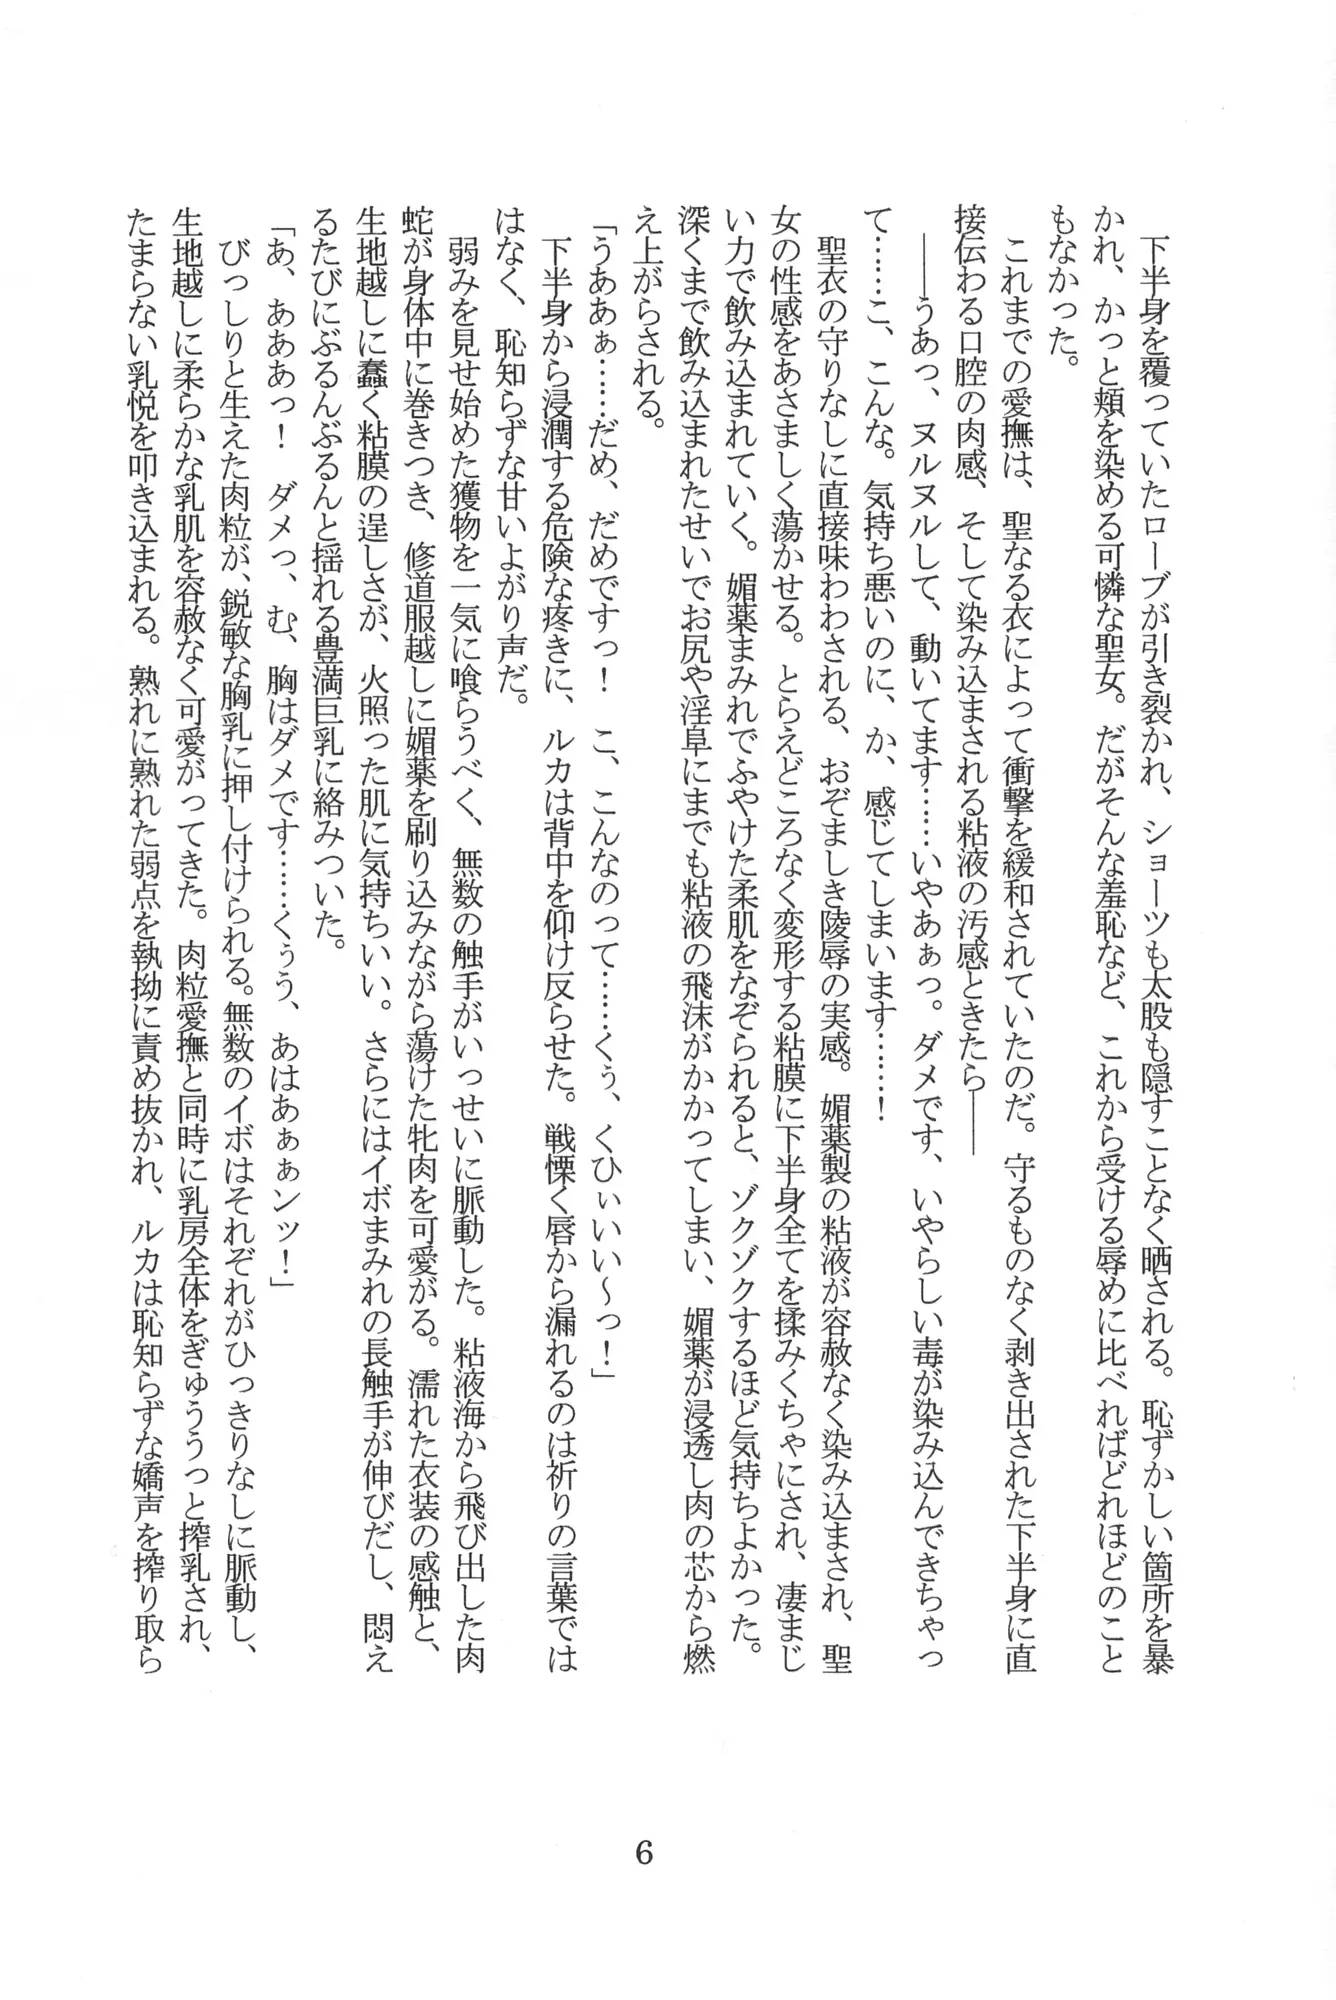 下半身を覆っていたローブが引き裂かれ、ショーツも太股も隠すことなく晒される。恥ずかしい箇所を暴
かれ、かっと頬を染める可憐な聖女。だがそんな羞恥など、これから受ける辱めに比べればどれほどのこと
もなかった。
これまでの愛撫は、聖なる衣によって衝撃を緩和されていたのだ。守るものなく剥き出された下半身に直
接伝わる口腔の肉感、そして染み込まされる粘液の汚感ときたら――
――うあっ、ヌルヌルして、動いてます……いやあぁっ。ダメです、いやらしい毒が染み込んできちゃっ
て……こ、こんな。気持ち悪いのに、か、感じてしまいます……！
聖衣の守りなしに直接味わわされる、おぞましき陵辱の実感。媚薬製の粘液が容赦なく染み込まされ、聖
女の性感をあさましく蕩かせる。とらえどころなく変形する粘膜に下半身全てを揉みくちゃにされ、凄まじ
い力で飲み込まれていく。媚薬まみれでふやけた柔肌をなぞられると、ゾクゾクするほど気持ちよかった。
深くまで飲み込まれたせいでお尻や淫阜にまでも粘液の飛沫がかかってしまい、媚薬が浸透し肉の芯から燃
え上がらされる。
「うああぁ……だめ、だめですっ！　こ、こんなのって……くぅ、くひぃいい〜っ！」
下半身から浸潤する危険な疼きに、ルカは背中を仰け反らせた。戦慄く唇から漏れるのは祈りの言葉では
はなく、恥知らずな甘いよがり声だ。
弱みを見せ始めた獲物を一気に喰らうべく、無数の触手がいっせいに脈動した。粘液海から飛び出した肉
蛇が身体中に巻きつき、修道服越しに媚薬を刷り込みながら蕩けた牝肉を可愛がる。濡れた衣装の感触と、
生地越しに蠢く粘膜の逞しさが、火照った肌に気持ちいい。さらにはイボまみれの長触手が伸びだし、悶え
るたびにぶるんぶるんと揺れる豊満巨乳に絡みついた。
「あ、あああっ！　ダメっ、む、胸はダメです……くぅう、あはあぁぁンッ！」
びっしりと生えた肉粒が、鋭敏な胸乳に押し付けられる。無数のイボはそれぞれがひっきりなしに脈動し、
生地越しに柔らかな乳肌を容赦なく可愛がってきた。肉粒愛撫と同時に乳房全体をぎゅううっと搾乳され、
たまらない乳悦を叩き込まれる。熟れに熟れた弱点を執拗に責め抜かれ、ルカは恥知らずな嬌声を搾り取ら
6